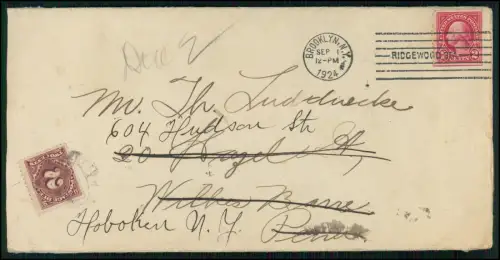 Due 2
BROOKLYN, N.Y.
SEP 1
12-PM
1924
RIDGEWOOD
2
Mr. Th. Luddnecke
604 Hudson Str
20 Hazel St,
Wilkes Barre
Hoboken N. Y. Penna